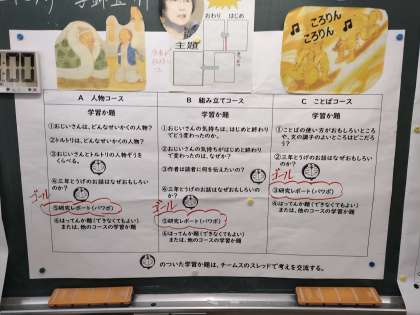 おわり はじめ
主題
ころりん
ころりん
00
A 人物コース
学習か題
①おじいさんは、どんなせいかくの人物？
②トルトリは、どんなせいかくの人物？
③おじいさんとトルトリの人物ぞうをくらべる。
④三年とうげのお話はなぜおもしろいのか？
ゴール
⑤研究レポート（パワポ）
⑥はってんか題（できなくてもよい）
または、他のコースの学習か題
B 組み立てコース
学習か題
①おじいさんの気持ちは、はじめと終わりでどう変わったのか。
②おじいさんの気持ちがはじめと終わりで変わったのは、なぜか？
③作者は読者に何を伝えたいの？
④三年とうげのお話はなぜおもしろいのか？
ゴール
⑤研究レポート（パワポ）
⑥はってんか題（できなくてもよい）
または、他のコースの学習か題
C ことばコース
学習か題
①ことばの使い方がおもしろいところや、文の調子のよいところはどこだろう？
②三年とうげのお話はなぜおもしろいのか？
ゴール
③研究レポート（パワポ）
④はってんか題（できなくてもよい）
または、他のコースの学習か題
のついた学習か題は、チームスのスレッドで考えを交流する。